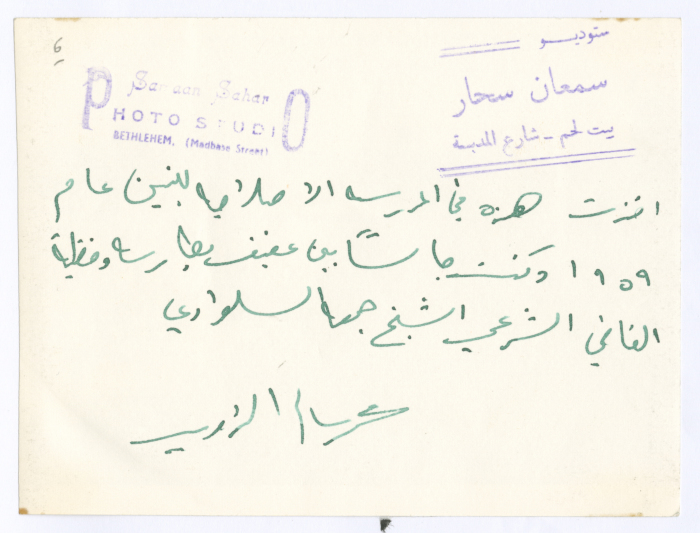 6
Samaan Sahar
PHOTO STUDIO
BETHLEHEM, (Madbase Street)
ستوديو
سمعان سحار
بيت لحم - شارع المدبسة
اخذت هذه في المدرسة الاصلاحية للبنين عام
١٩٥٩ وكنت جالسًا بين عفيف بطارسه وفضيلة
القاضي الشرعي الشيخ جمعه السلوادي